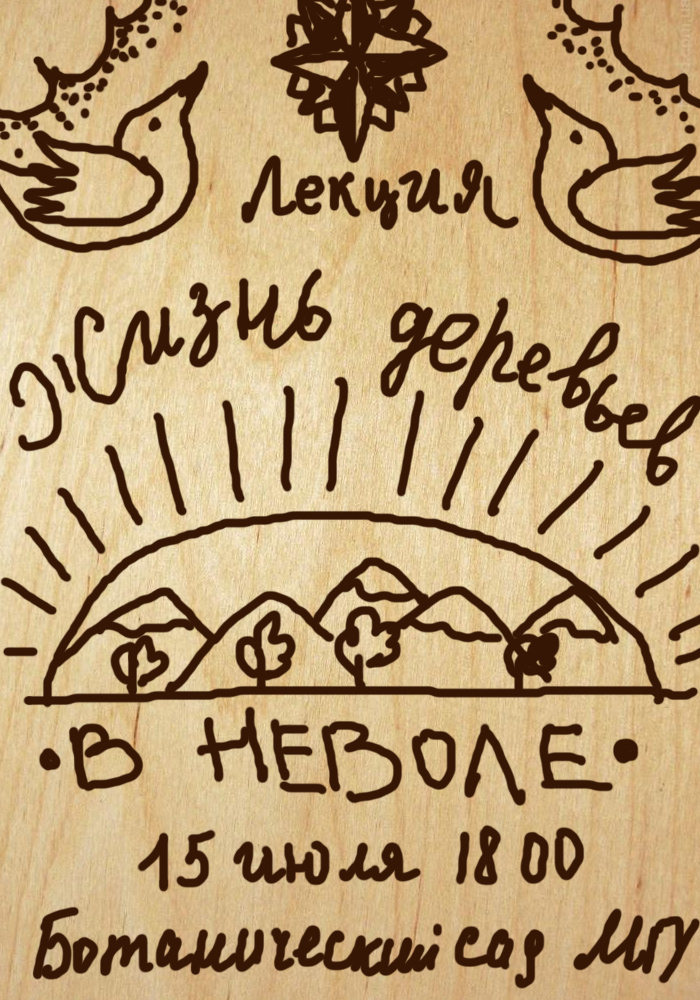 Лекция
Жизнь деревьев
• В НЕВОЛЕ •
15 июля 18 00
Ботанический сад МГУ